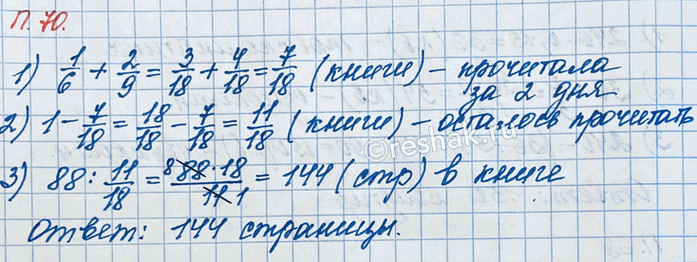 П. 70.
1) 1/6 + 2/9 = 3/18 + 4/18 = 7/18 (книги) – прочитала
за 2 дня
2) 1 – 7/18 = 18/18 – 7/18 = 11/18 (книги) – осталось прочитать
3) 88 : 11/18 = 8 88·18 / 11 1 = 144 (стр) в книге
Ответ: 144 страницы.
©reshak.ru